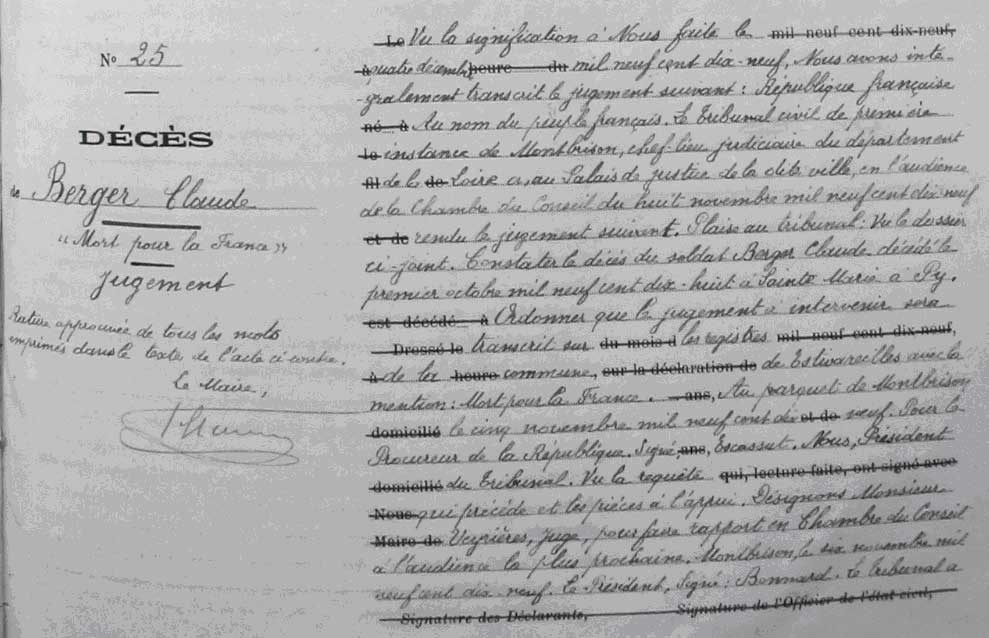 N° 25
DÉCÈS
de Berger Claude
"Mort pour la France"
Jugement
Rature approuvée de tous les mots
imprimés dans le texte de l'acte ci-contre.
Le Maire,
Le Vu la signification à Nous faite le mil neuf cent dix-neuf,
à quatre décembre heure du mil neuf cent dix-neuf, Nous avons inte-
-gralement transcrit le jugement suivant : République française
né à Au nom du peuple français. Le Tribunal civil de première
le instance de Montbrison, chef-lieu judiciaire du département
fil de la de Loire a, au Palais de justice de la dite ville, en l'audience
de la Chambre du Conseil du huit novembre mil neuf cent dix-neuf
et de rendu le jugement suivant. Plaise au tribunal : Vu le dossier
ci-joint. Constater le décès du soldat Berger Claude décédé le
premier octobre mil neuf cent dix-huit à Sainte Marie à Py.
est décédé à Ordonner que le jugement à intervenir sera
Dressé le transcrit sur du mois d les registres mil neuf cent dix-neuf,
à de la heure commune, sur la déclaration de de Estivareilles avec la
mention : Mort pour la France. ans, Au parquet de Montbrison
domicilié le cinq novembre mil neuf cent dix et de neuf. Pour le
Procureur de la République. Signé ans, Escassut. Nous, Président
domicilié du Tribunal. Vu la requête qui, lecture faite, ont signé avec
Nous qui précède et les pièces à l'appui. Désignons Monsieur
Maire de Veyrières, Juge, pour faire rapport en Chambre du Conseil
à l'audience la plus prochaine. Montbrison, le six novembre mil
neuf cent dix-neuf. Le Président, Signé : Bonnard. Le tribunal a
Signature des Déclarants, Signature de l'Officier de l'état civil,